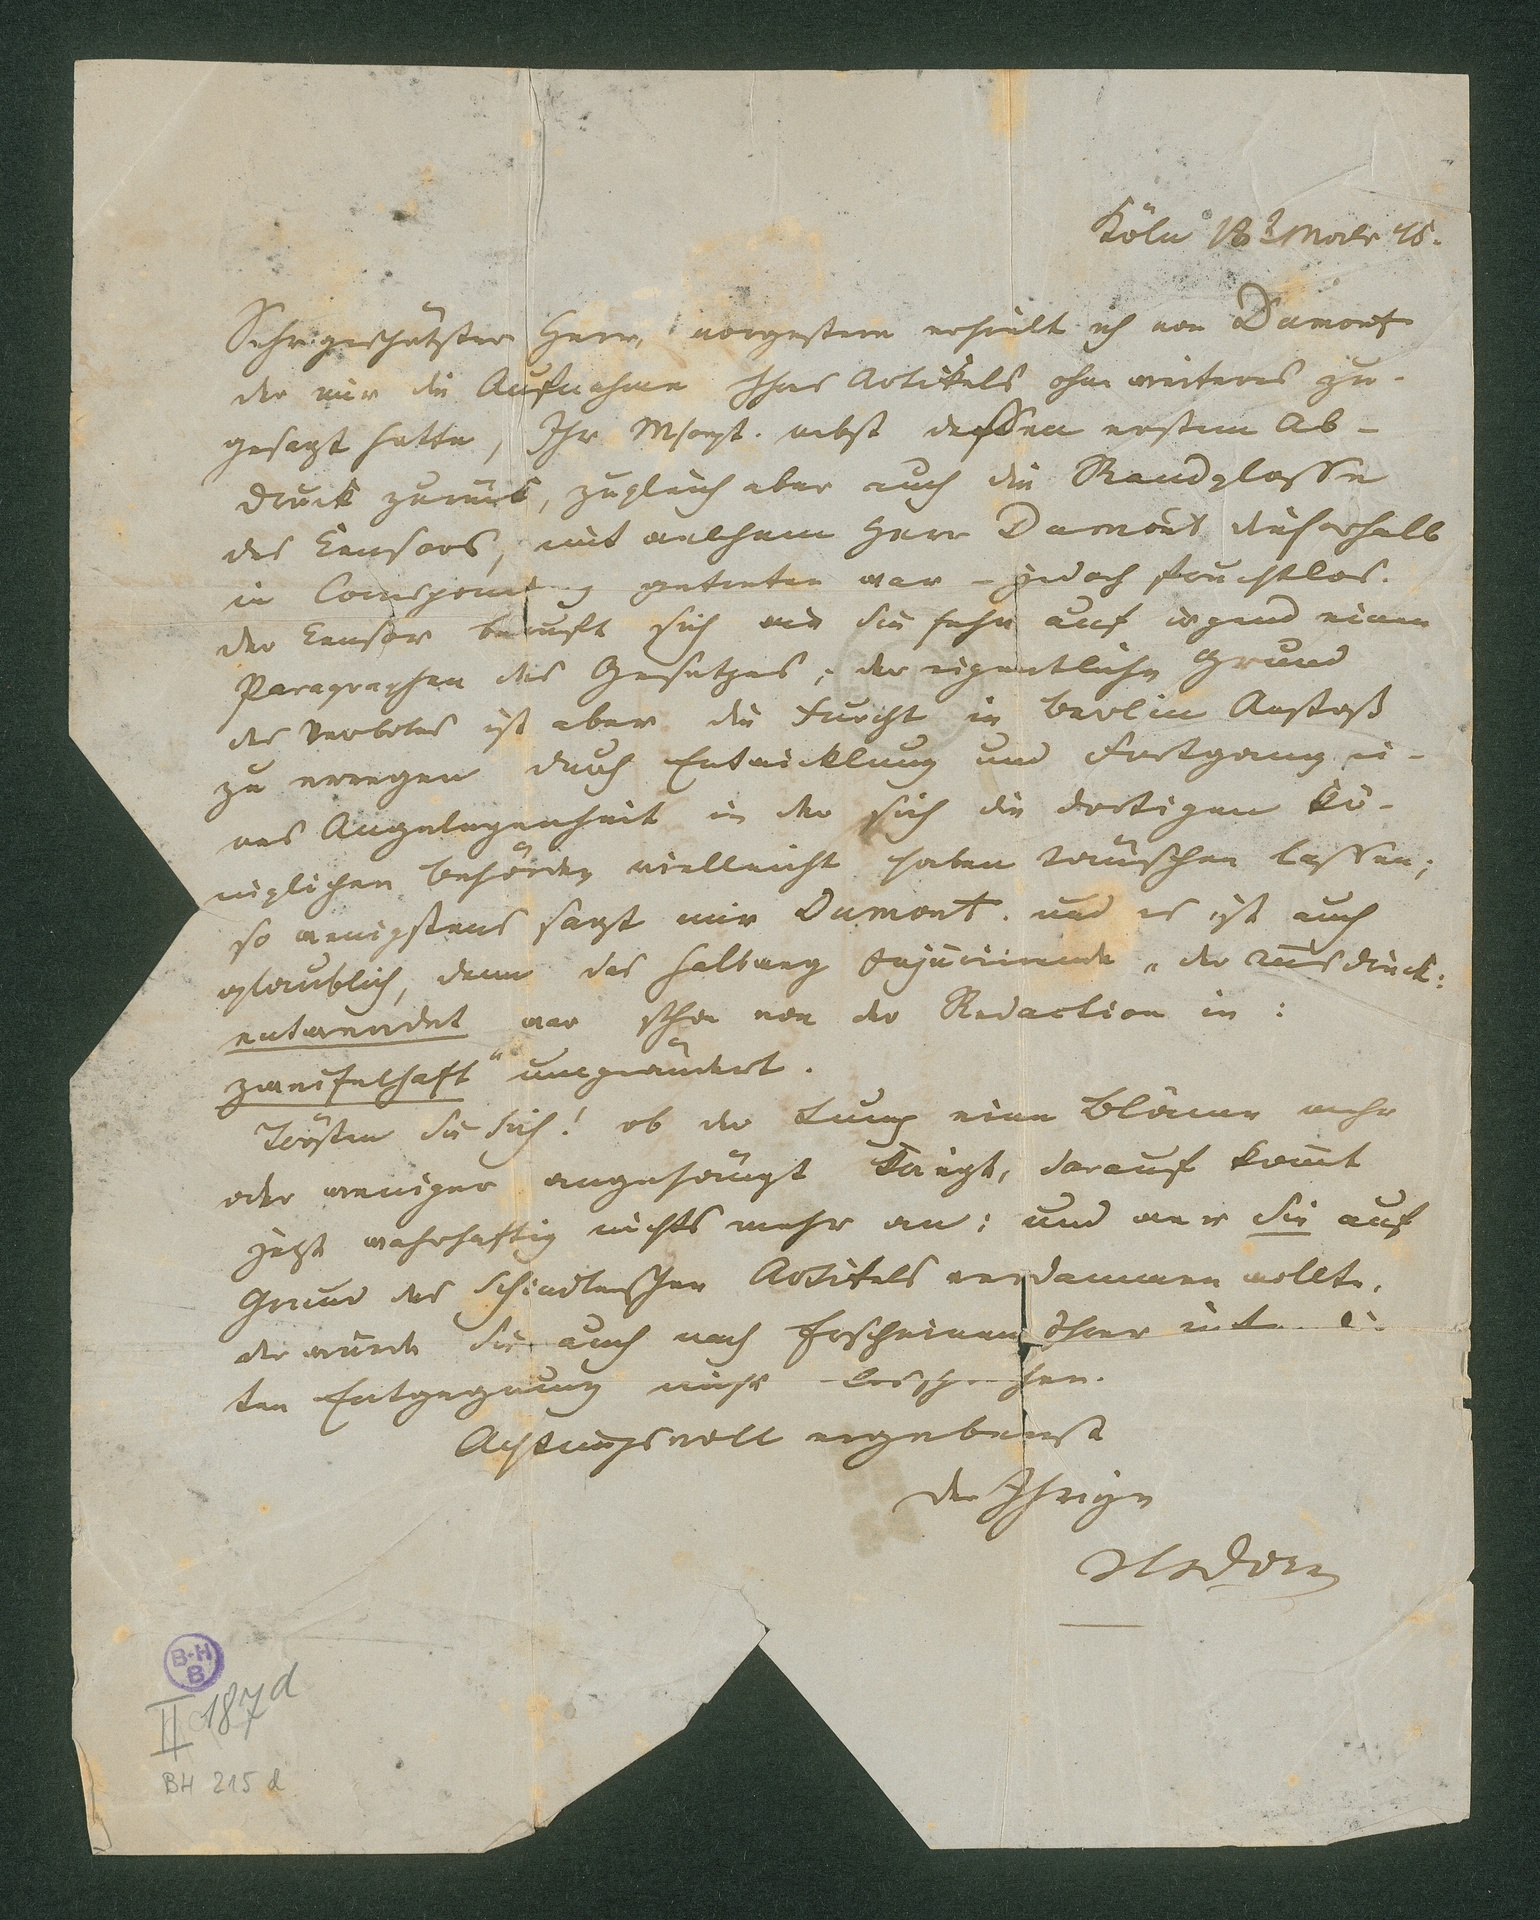 Köln 18 März 45.
Sehr geschätzter Herr, vorgestern erhielt ich von Dumont
der mir die Aufnahme Ihres Artikels ohne weiteres zu-
gesagt hatte, Ihr Mscpt. nebst dessen erstem Ab-
druck zurück, zugleich aber auch die Randglosse
des Censors, mit welchem Herr Dumont dieserhalb
in getreten war – jedoch fruchtlos.
der Censor beruft sich wie Sie sehn auf irgend einen
Paragraphen des Gesetzes; der eigentliche Grund
des Verbotes ist aber die Furcht in Berlin Anstoß
zu erregen durch Entwicklung und Fortgang ei-
ner Angelegenheit in der sich die dortigen Kö-
niglichen Behörden vielleicht haben täuschen lassen;
so wenigstens sagt mir Dumont. und es ist auch
glaublich, denn das halbweg Injuriirende „der Ausdruck:
entwendet war schon von der Redaction in:
zweifelhaft“ umgeändert.
Trösten Sie sich! ob der Lump eine Blâme mehr
oder weniger angehängt kriegt, darauf kommt
jetzt wahrhaftig nichts mehr an; und wer Sie auf
Grund des Schindlerschen Artikels verdammen wollte,
der würde Sie auch nach Erscheinen Ihrer
ten Entgegnung nicht lossprechen.
Achtungsvoll ergebenst
der Ihrige
HDorn
B-H
B
II 187d
BH 215 d